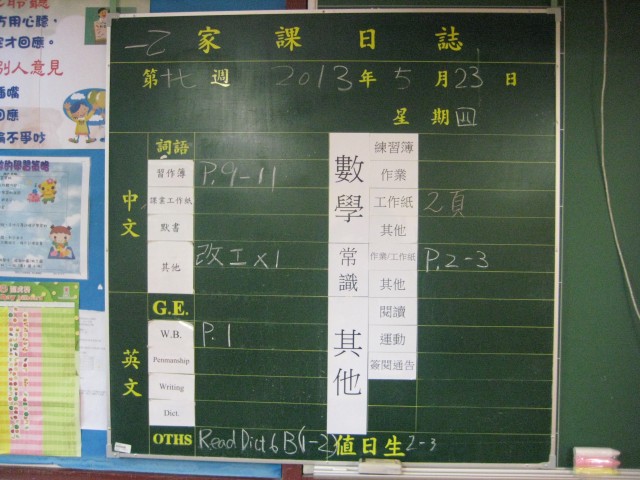 一乙 家課日誌
第十七週 2013年5月23日
星期四
中文
詞語
習作簿 P.9-11
課業工作紙
默書
其他 改工x1
英文
G.E.
W.B. P.1
Penmanship
Writing
Dict.
OTHS Read Dict 6 B(1-2)
數學
練習簿
作業
工作紙 2頁
其他
常識
作業/工作紙 P.2-3
其他
其他
閱讀
運動
簽閱通告
值日生 2-3
方用心聽,
才回應。
別人意見
嘴
回應
不爭吵